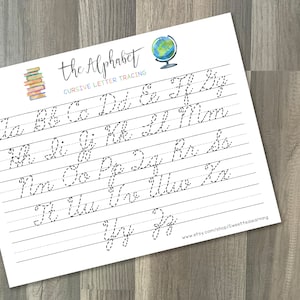 the Alphabet
CURSIVE LETTER TRACING
Aa Bb Cc Dd Ee Ff Gg
Hh Ii Jj Kk Ll Mm
Nn Oo Pp Qq Rr Ss
Tt Uu Vv Ww Xx
Yy Zz